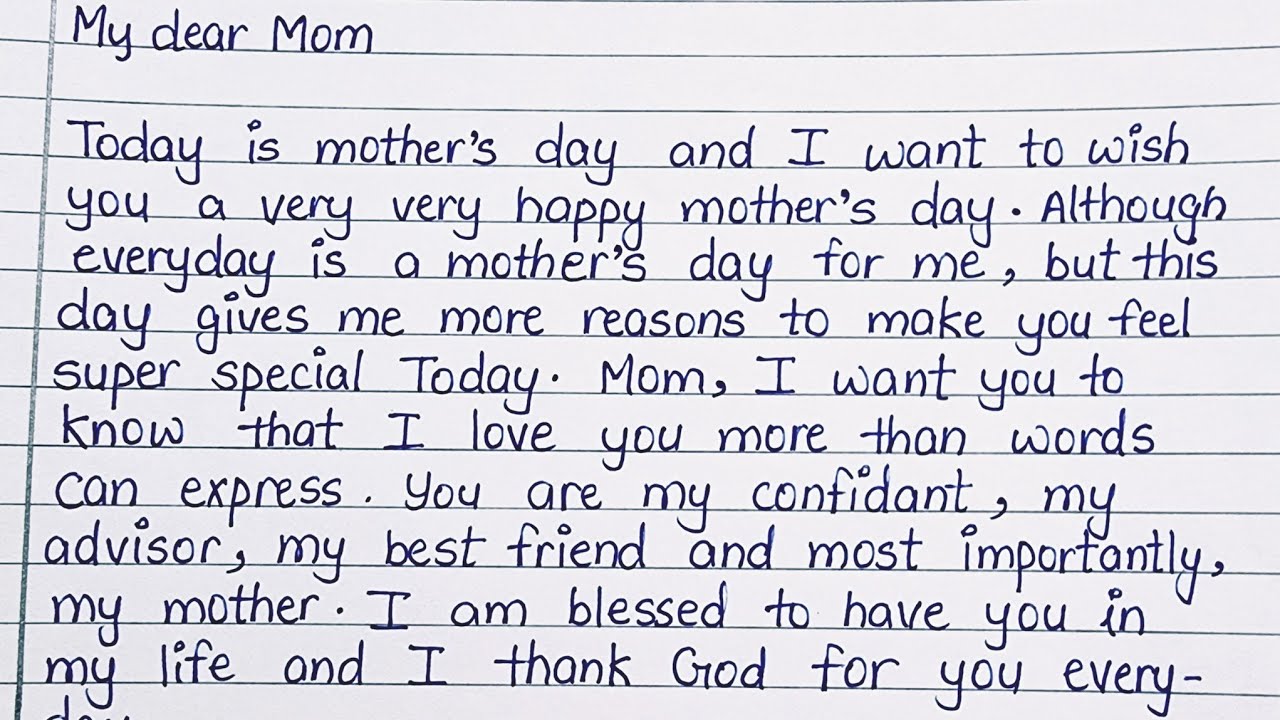 My dear Mom
Today is mother's day and I want to wish
you a very very happy mother's day. Although
everyday is a mother's day for me, but this
day gives me more reasons to make you feel
super special Today. Mom, I want you to
know that I love you more than words
can express. You are my confidant, my
advisor, my best friend and most importantly,
my mother. I am blessed to have you in
my life and I thank God for you every-